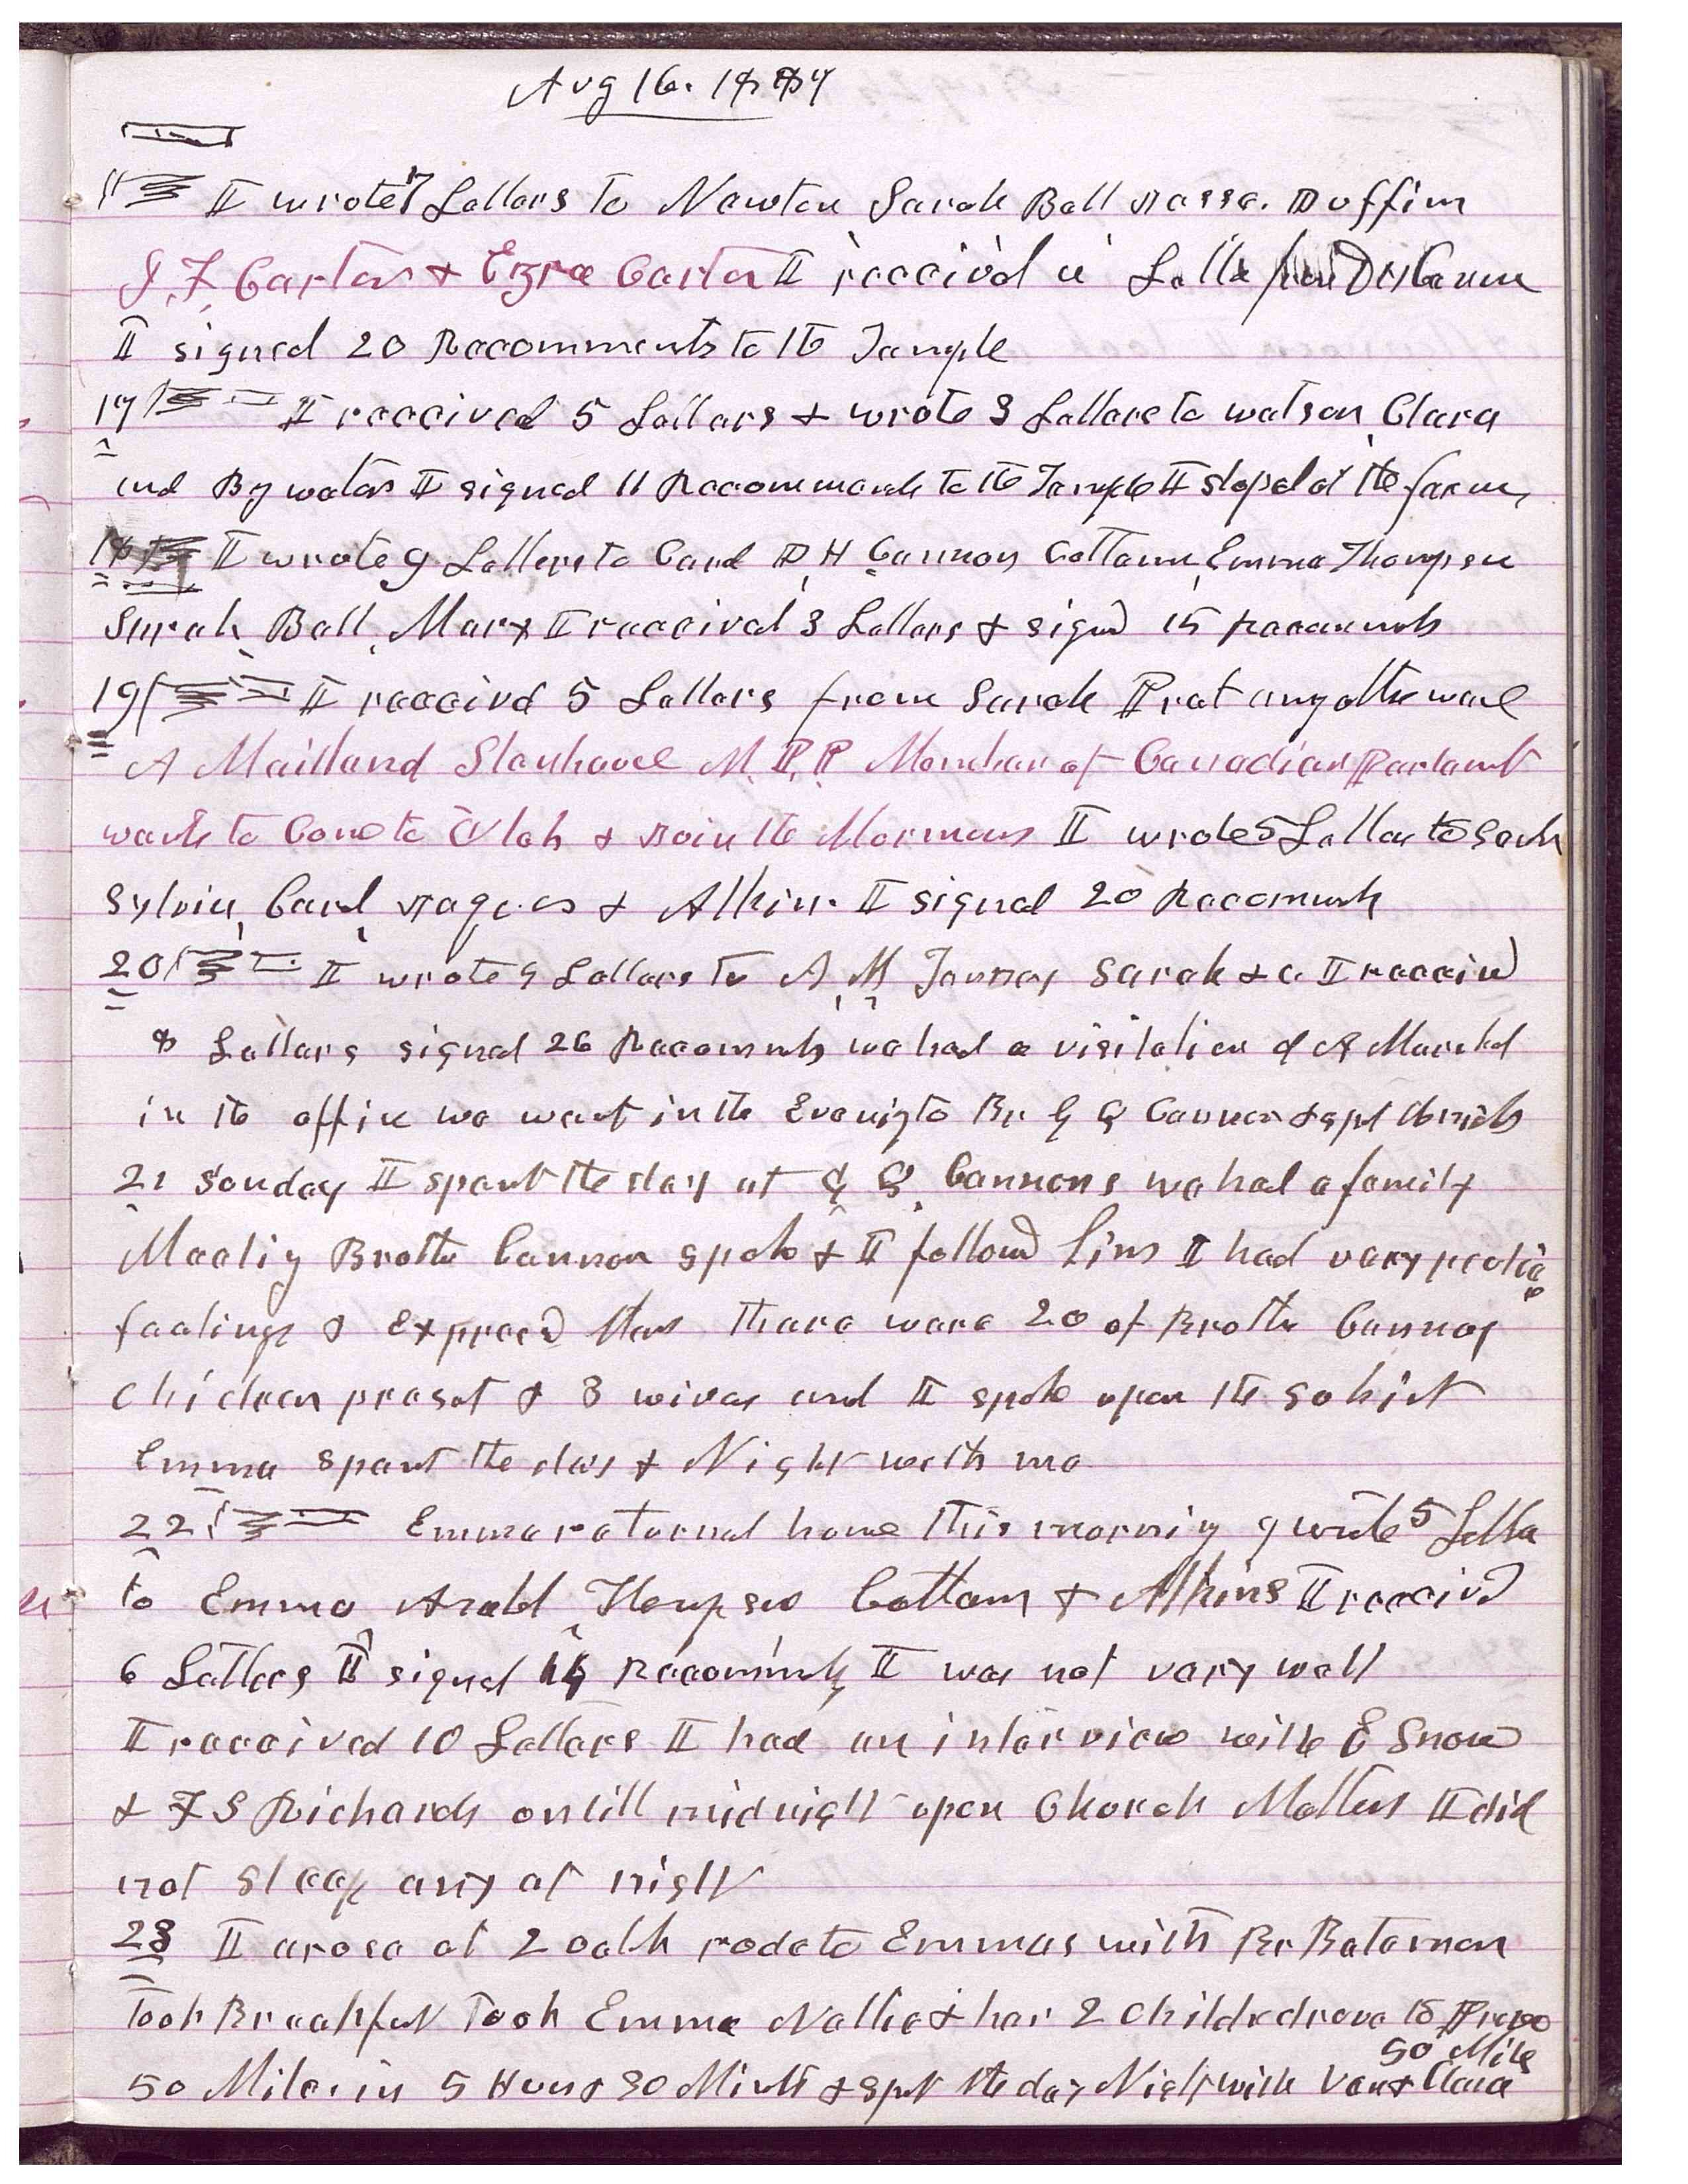 Aug 16. 1887
I wrote 7 Letters to Newton Sarah Bell Jesse. Duffin
J. F. Carter & Ezra Carter I receivd a Letter from
I signed 20 Recomments to the Temple
17 I received 5 Letters & wrote 3 Letters to watson, Clara
and By water I signed 11 Recommends to the Temple I stoped at the farm,
18 I wrote 9 Letters to Card D, H Cannon Cottam, Emma Thompson
Sarah, Bell, Mary I received 3 Letters & signd 15 Recomends
19 I receivd 5 Letters from Sarah Prat any other
A Maitland Stenhouse M. P. P. Member of Canadian Parlamet
wants to Come to Utah & Join the Mormons I wrote 5 Letters to Sarah
Sylvia, Card, Jaques & Atkin. I signed 20 Recomends
20 I wrote 9 Letters to A, M, Tenney Sarah &c. I receivd
8 Letters signed 26 Recomends we had a visitation of
in the office we went in the Evenig to Br G Q Cannon & spt the night
21 Sunday I spent the day at G Q, Cannons we had a family
Meetig Brother Cannon spoke & I followd him I had very peculiar
feelings & Expressd them There were 20 of Brother Cannons
Children preset & 3 wives and I spoke upon the subject
Emma spent the day & Night with me
22 Emma returned home this morning I wrote 5 Letters
to Emma Asahel, Thompson Cottam & Atkins I receivd
6 Letters I signed Recomends I was not very well
I received 10 Letters I had an interview with E Snow
& F S Richards untill midnight upon Church Matters I did
not sleep any at night
23 I arose at 2 oclk rode to Emmas with Br Bateman
Took Breakfast Took Emma Nellie & her 2 Childr drove to Provo
50 Mile
50 Miles in 5 Hours 30 Minuts & spet the day Night with & Clara